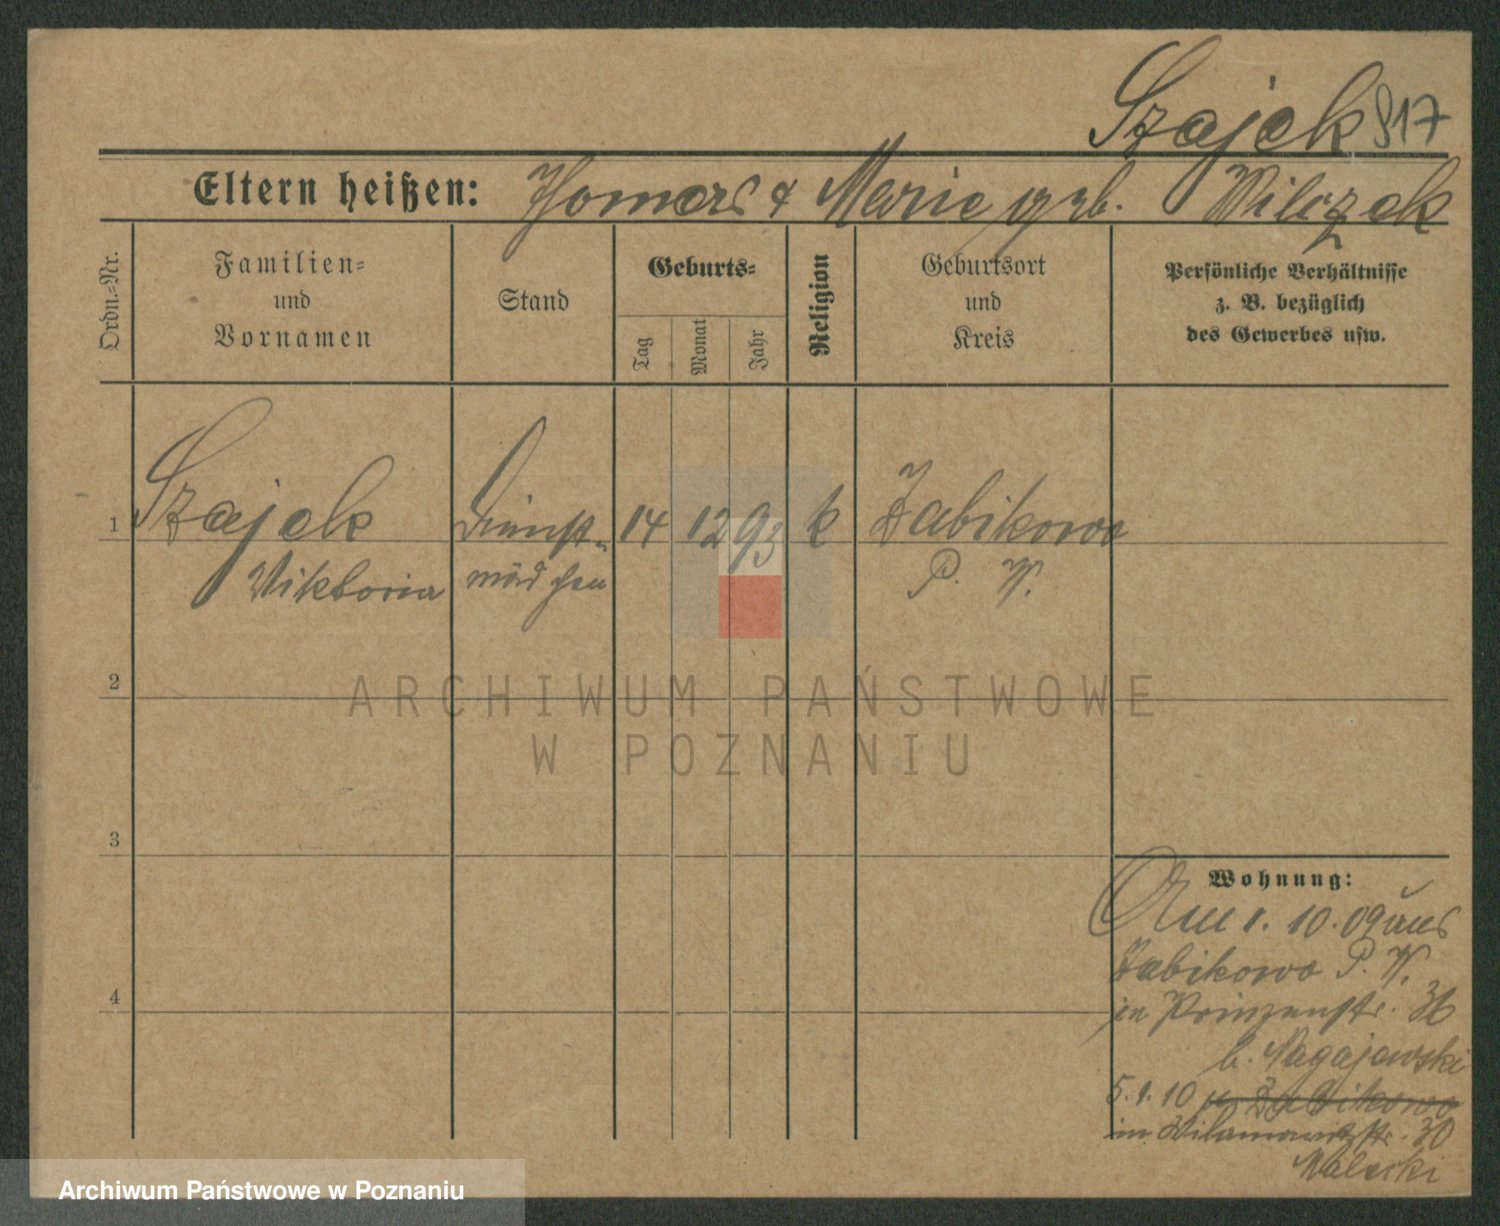 Szajek 817
Eltern heißen: Thomas & Marie geb. Wilczek
Ordn.-Nr.
Familien-
und
Vornamen
Stand
Geburts-
Tag
Monat
Jahr
Religion
Geburtsort
und
Kreis
Persönliche Verhältnisse
z. B. bezüglich
des Gewerbes usw.
1 Szajek Dienst- 14 12 93 k Zabikowo
Viktoria mädchen P. W.
2
ARCHIWUM PAŃSTWOWE
W POZNANIU
3
4
Wohnung:
Am 1. 10. 09 aus
Zabikowo P. W.
in Prinzenstr. 36
b. Nagajewski
5. 1. 10 n. Zabikowo
in Wilamowitzstr. 30
Malecki
Archiwum Państwowe w Poznaniu